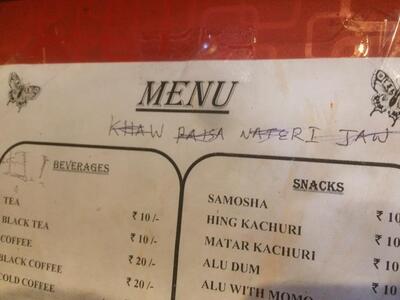 MENU
KHAW PAISA NAFERI JAW
BEVERAGES
TEA ₹ 10/-
BLACK TEA ₹ 10/-
COFFEE ₹ 20/-
BLACK COFFEE ₹ 20/-
COLD COFFEE
SNACKS
SAMOSHA ₹ 10
HING KACHURI ₹ 10
MATAR KACHURI ₹ 10
ALU DUM ₹ 10
ALU WITH MOMO